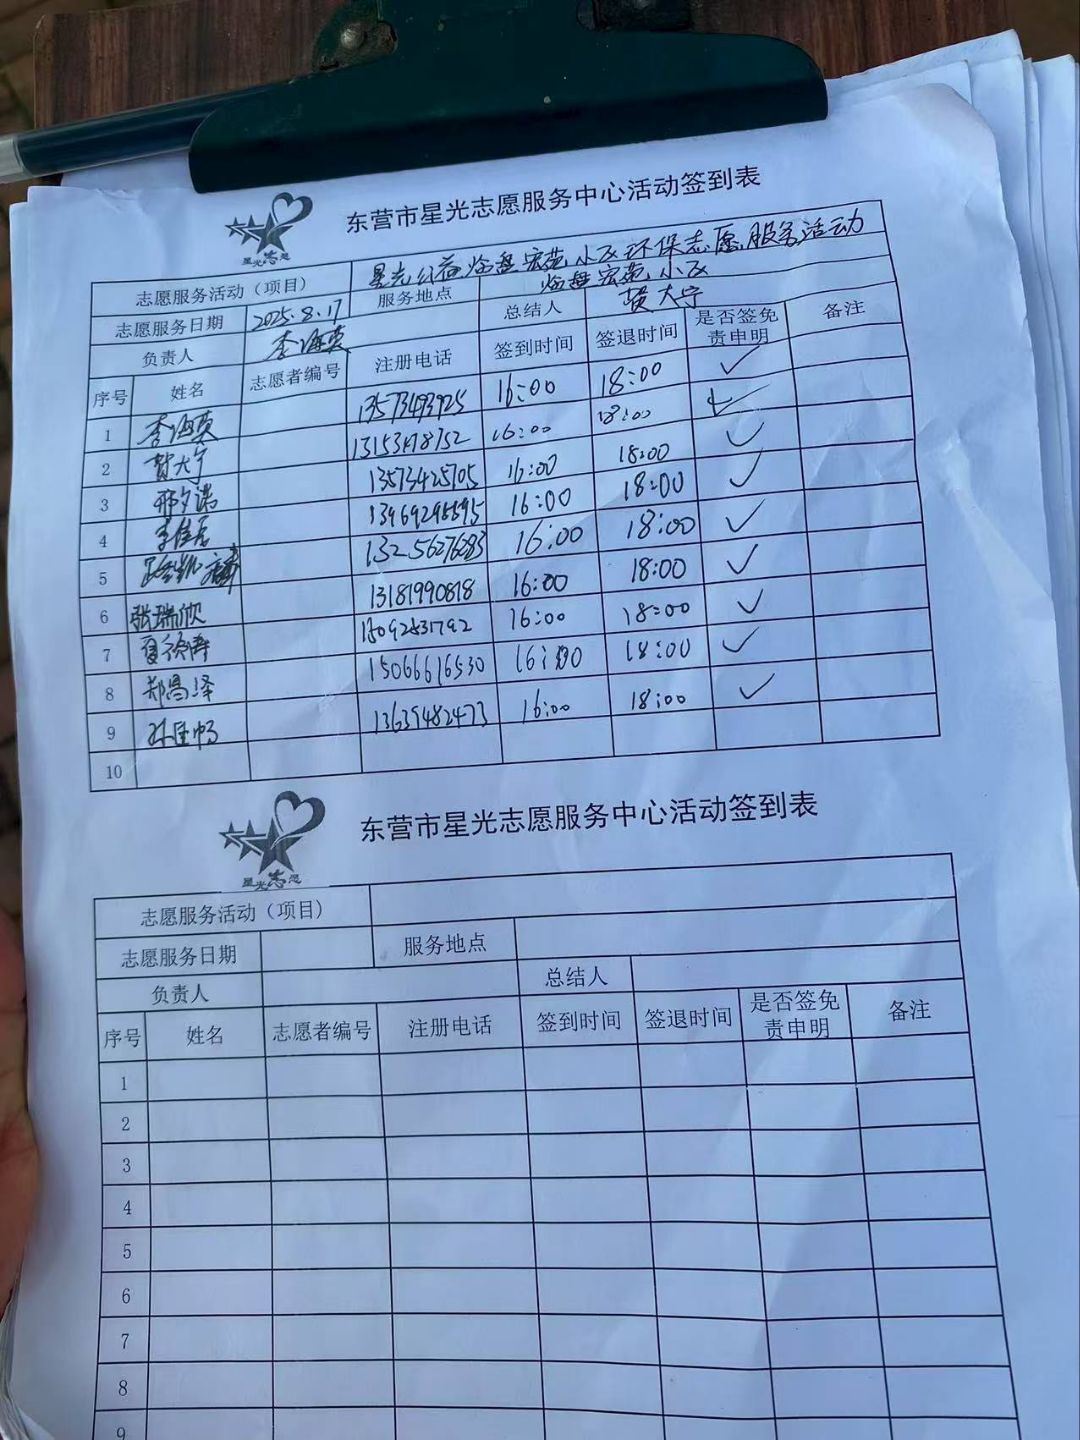 东营市星光志愿服务中心活动签到表
星光志愿
志愿服务活动（项目） 星光公益临盘宏苑小区环保志愿服务活动
志愿服务日期 2025.8.17 服务地点 临盘宏苑小区
负责人 李海英 总结人 贺大宁
序号 姓名 志愿者编号 注册电话 签到时间 签退时间 是否签免责申明 备注
1 李海英 13573493925 16:00 18:00 ✓
2 贺大宁 13153478752 16:00 18:00 ✓
3 邢夕诺 13573425705 16:00 18:00 ✓
4 李佳居 13969296595 16:00 18:00 ✓
5 路凯麟 13256276283 16:00 18:00 ✓
6 张瑞欣 13181990818 16:00 18:00 ✓
7 16:00 18:00 ✓
8 郑昌泽 15066616530 16:00 18:00 ✓
9 孙佳畅 13639482473 16:00 18:00 ✓
10
东营市星光志愿服务中心活动签到表
星光志愿
志愿服务活动（项目）
志愿服务日期 服务地点
负责人 总结人
序号 姓名 志愿者编号 注册电话 签到时间 签退时间 是否签免责申明 备注
1
2
3
4
5
6
7
8
9